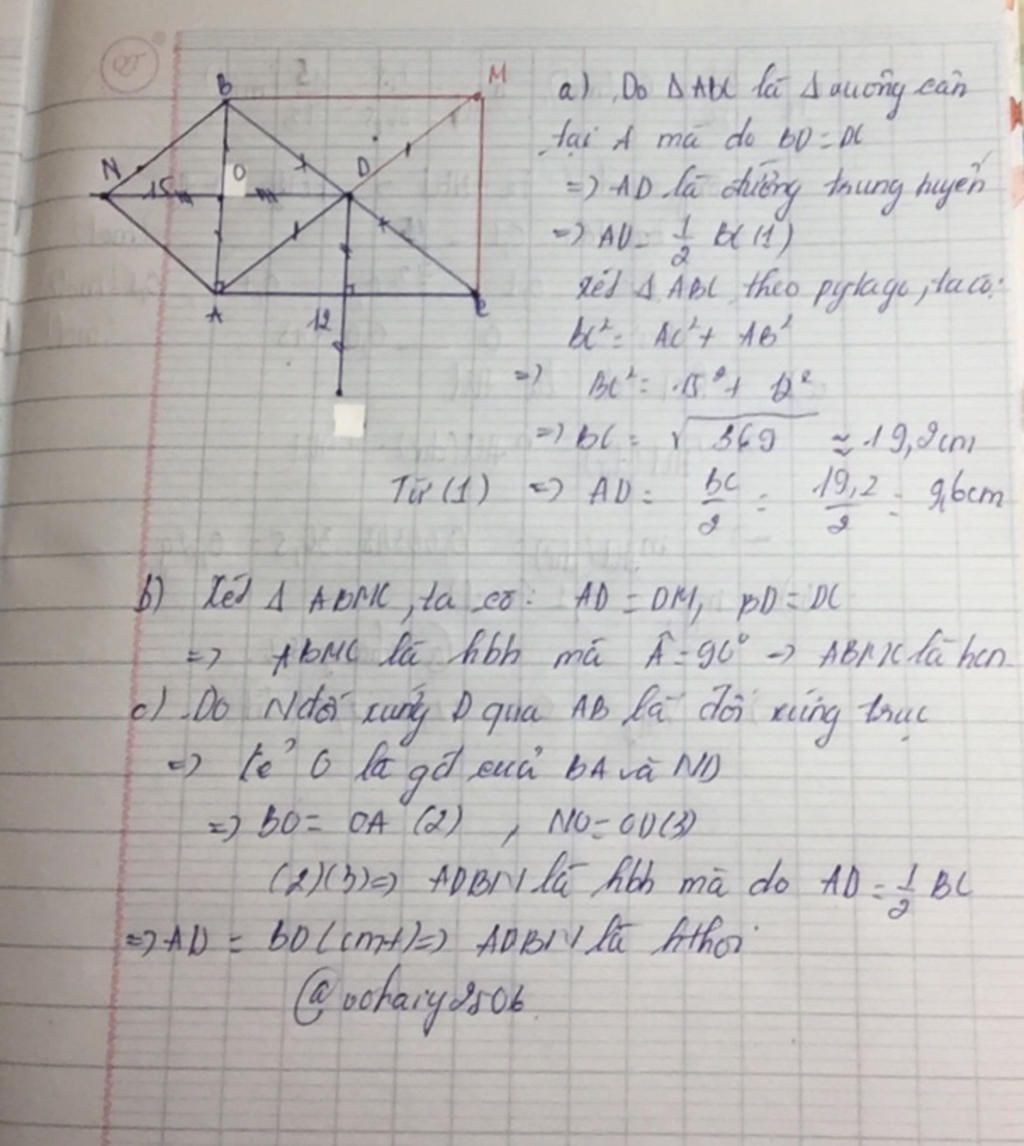 B
M
N
15
O
D
A
12
C
a) Do Δ ABC là Δ vuông cân
tại A mà do BD = DC
=> AD là đường trung tuyến
=> AD = 1/2 BC (1)
Xét Δ ABC theo pytago, ta có:
BC² = AC² + AB²
=> BC² = 15² + 12²
=> BC = √369 ≈ 19,2cm
Từ (1) => AD = BC/2 = 19,2/2 = 9,6cm
b) Xét Δ ABMC, ta có: AD = DM, BD = DC
=> ABMC là hbh mà Â = 90° => ABMC là hcn
c) Do N đối xứng D qua AB là đối xứng trục
=> kẻ O là gđ của BA và ND
=> BO = OA (2) , NO = OD (3)
(2)(3) => ADBN là hbh mà do AD = 1/2 BC
=> AD = BD (cmt) => ADBN là hthoi